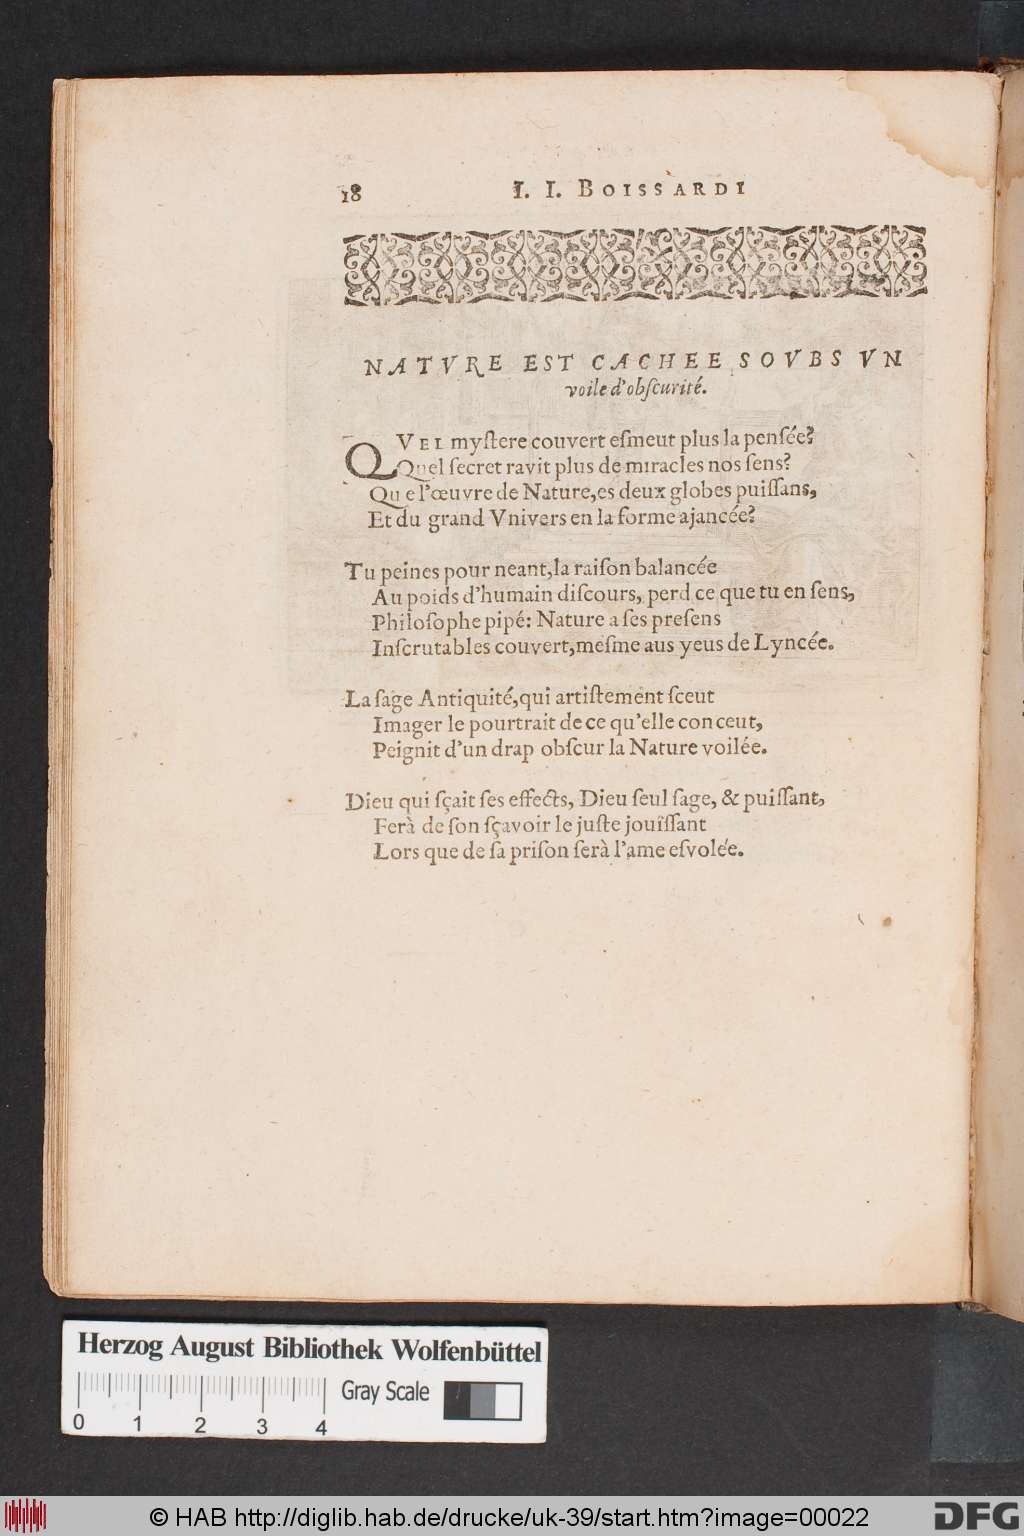 18 I. I. BOISSARDI
NATVRE EST CACHEE SOVBS VN
voile d'obſcurité.
QVEL myſtere couvert eſmeut plus la penſée?
Quel ſecret ravit plus de miracles nos ſens?
Que l'œuvre de Nature, es deux globes puiſſans,
Et du grand Vnivers en la forme ajancée?
Tu peines pour neant, la raiſon balancée
Au poids d'humain diſcours, perd ce que tu en ſens,
Philoſophe pipé: Nature a ſes preſens
Inſcrutables couvert, meſme aus yeus de Lyncée.
La ſage Antiquité, qui artiſtement ſceut
Imager le pourtrait de ce qu'elle conceut,
Peignit d'un drap obſcur la Nature voilée.
Dieu qui ſçait ſes effects, Dieu ſeul ſage, & puiſſant,
Ferà de ſon ſçavoir le juſte jouïſſant
Lors que de ſa priſon ſerà l'ame eſvolée.
Herzog August Bibliothek Wolfenbüttel
Gray Scale
0 1 2 3 4
© HAB http://diglib.hab.de/drucke/uk-39/start.htm?image=00022
DFG